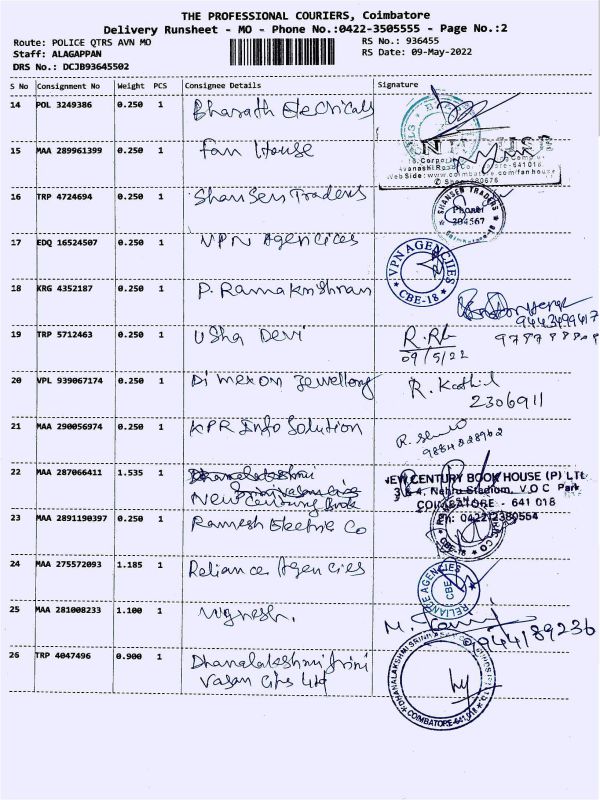 THE PROFESSIONAL COURIERS, Coimbatore
Delivery Runsheet - MO - Phone No.:0422-3505555 - Page No.:2
Route: POLICE QTRS AVN MO
RS No.: 936455
Staff: ALAGAPPAN
RS Date: 09-May-2022
DRS No.: DCJB93645502
S No Consignment No Weight PCS Consignee Details Signature
14 POL 3249386 0.250 1 Bharath Electricals
15 MAA 289961399 0.250 1 Fan House
16 TRP 4724694 0.250 1 Shansen Traders
SHANSEN TRADERS
Phone:
304567
17 EDQ 16524507 0.250 1 VPN Agencices
VPN AGENCIIES
CBE-18
18 KRG 4352187 0.250 1 P. Ramakrishnan
19 TRP 5712463 0.250 1 Usha Devi
09/5/22
20 VPL 939067174 0.250 1 Dimexon Jewellery
2306911
21 MAA 290056974 0.250 1 KPR Info Solution
22 MAA 287066411 1.535 1 Dhanalakshmi
New Century Book
NEW CENTURY BOOK HOUSE (P) LTD
3 & 4, Nehru Stadiom, V.O.C Park
COIMBATORE - 641 018
Ph: 0422-2380554
23 MAA 2891190397 0.250 1 Ramesh Electric Co
24 MAA 275572093 1.185 1 Reliance Agencies
RELIANCE AGENCIES
CBE
25 MAA 281008233 1.100 1 Vignesh.
26 TRP 4047496 0.900 1 Dhanalakshmi Srini
Vasan Cits Ltd
COIMBATORE-641 018